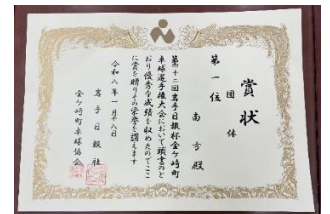 賞状
団体
第一位
南方殿
第六十二回岩手日報杯金ケ崎町
卓球選手権大会において頭書のと
おり優秀な成績を収めたのでここ
に賞を贈りその栄誉を讃えます
令和八年一月十八日
岩手日報社
金ケ崎町卓球協会